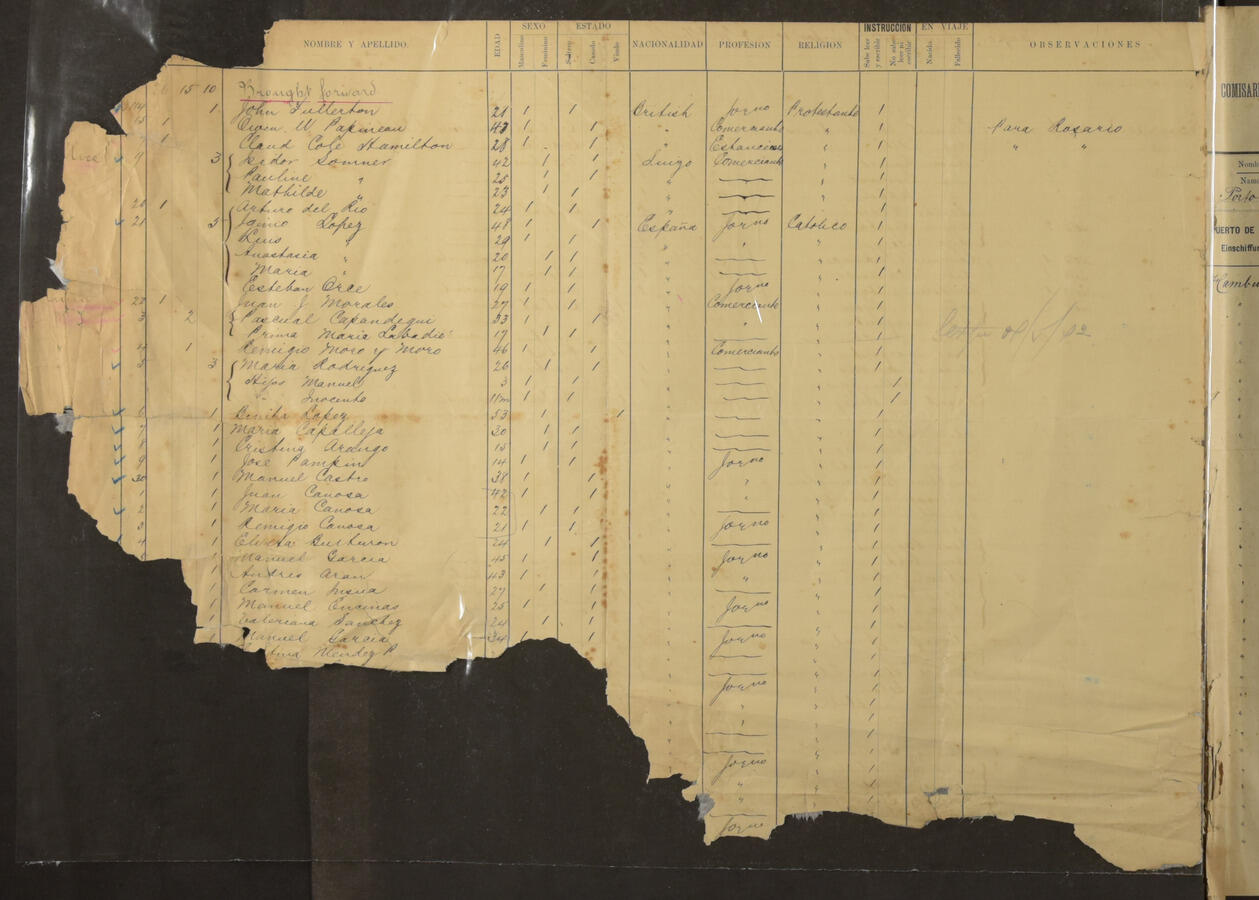 NOMBRE Y APELLIDO EDAD SEXO Masculino Femenino ESTADO Soltero Casado Viudo NACIONALIDAD PROFESION RELIGION INSTRUCCION Sabe leer y escribir No sabe leer ni escribir EN VIAJE Nacido Fallecido OBSERVACIONES
15 10 Brought forward
1 John Fullerton 21 1 1 British Jorno Protestante 1
15 1 Owen W Papineau 43 1 1 " Comerciante " 1 Para Rosario
1 Claud Cole Hamilton 28 1 1 " " 1 " "
9 3 Sommer 42 1 1 Comerciante " 1
Pauline " 25 1 1 " 1
Mathilde " 23 1 1 " 1
20 1 Arturo del Rio 24 1 1 " 1
21 5 Lopez 48 1 1 España Jorno Catolico 1
Luis " 29 1 1 " " " 1
Anastasia " 20 1 1 " 1
Maria " 17 1 1 " " 1
Esteban Orce 19 1 1 " Jorno " 1
22 1 Juan J Morales 27 1 1 " Comerciante " 1
3 2 Pascual Capandegui 33 1 1 " " " 1
Prima Maria Labadie 17 1 1 " " 1
4 1 Remigio Moro y Moro 46 1 1 " Comerciante " 1
5 3 Maria Rodriguez 26 1 1 " " 1
Hijos Manuel 3 1 1 " " 1
" Inocento 11m 1 1 " " 1
6 1 Benita Lopez 53 1 1 " " 1
7 1 Maria Capalleja 30 1 1 " " 1
8 1 Cristina Arango 15 1 1 " " 1
9 1 José Pampin 14 1 1 " Jorno " 1
30 1 Manuel Castro 38 1 1 " " " 1
1 1 Juan Canosa 42 1 1 " " " 1
2 1 Maria Canosa 22 1 1 " " 1
3 1 Remigio Canosa 21 1 1 " Jorno " 1
4 1 24 1 1 " " 1
1 Manuel Garcia 45 1 1 " Jorno " 1
1 Andres Aran 43 1 1 " " " 1
1 Carmen 27 1 1 " " 1
1 Manuel Encinas 25 1 1 " Jorno " 1
1 Valeriana Sanchez 24 1 1 " " 1
1 Manuel Garcia 34 1 1 " Jorno " 1
Mendez P
Jorno
Jorno
Jorno
COMISAR
Nomb
Name
Porto
UERTO DE
Einschiffun
Hambu